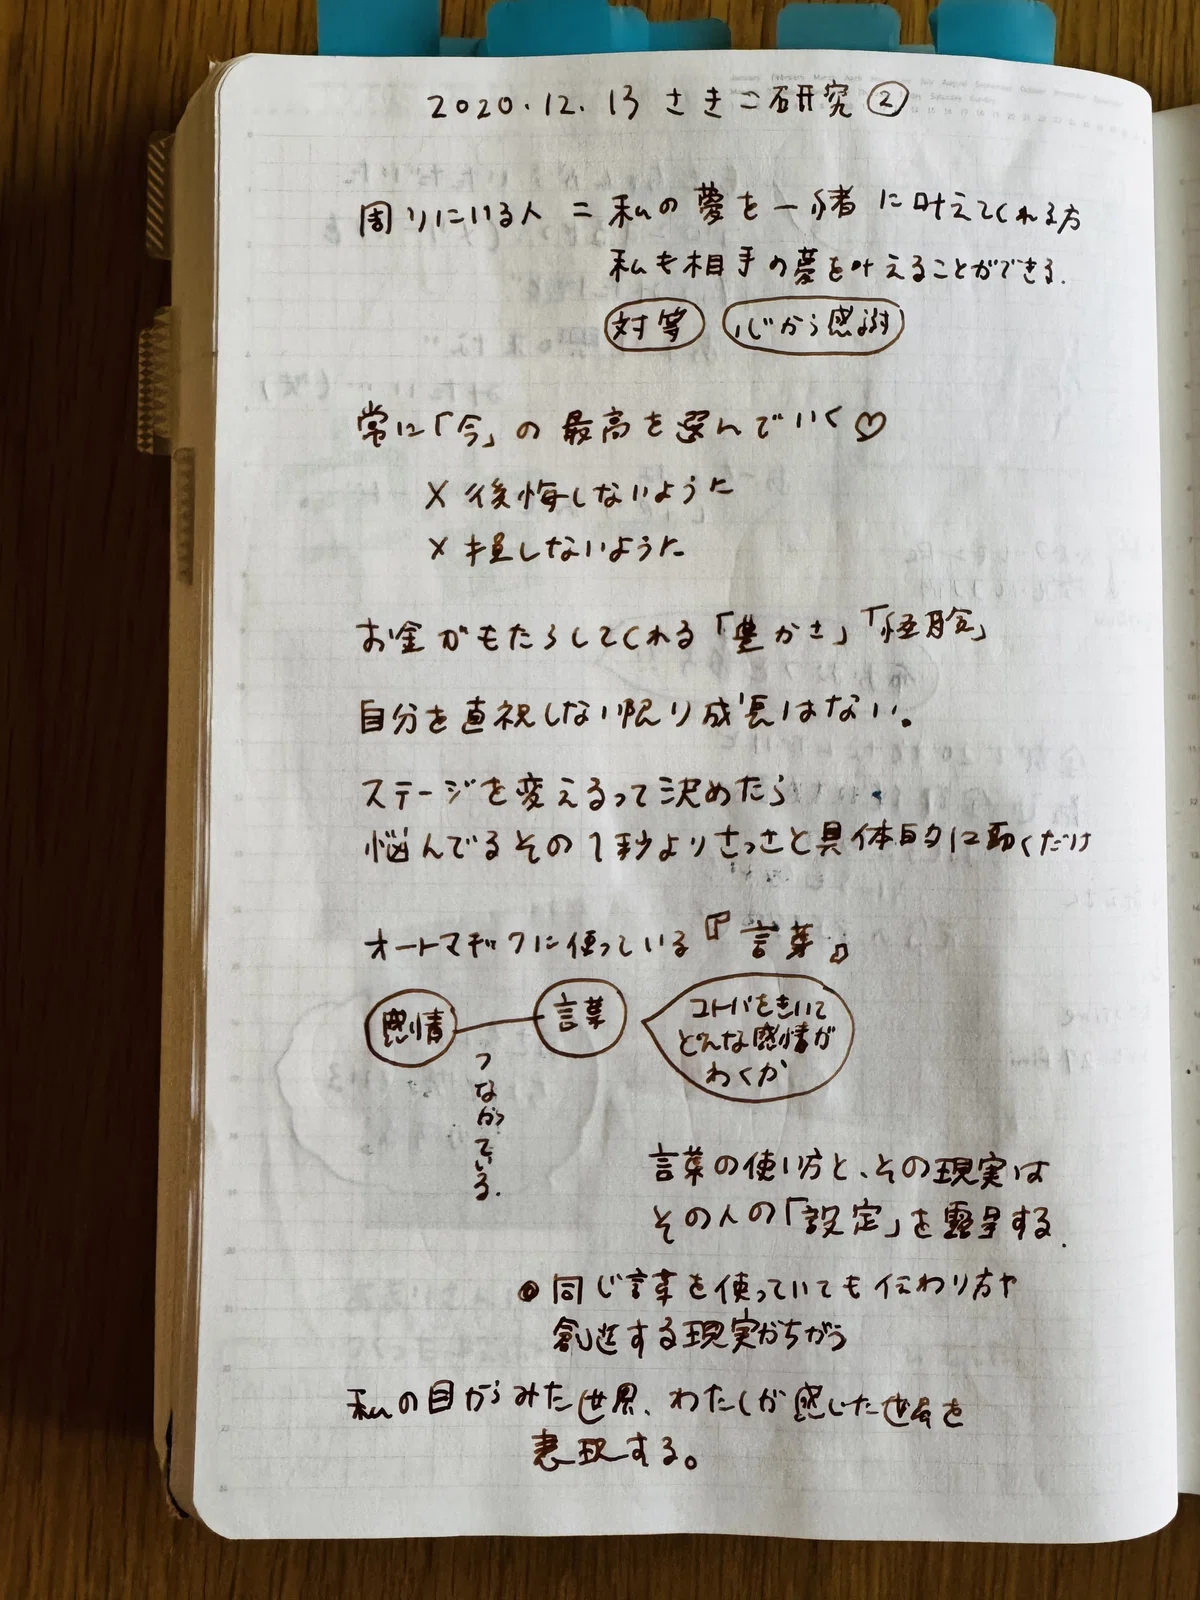 2020.12.13 さきこ研究②
周りにいる人 = 私の夢を一緒に叶えてくれる方
私も相手の夢を叶えることができる.
対等 心から感謝
常に「今」の最高を選んでいく♡
× 後悔しないように
× 損しないように
お金がもたらしてくれる「豊かさ」「経験」
自分を直視しない限り成長はない。
ステージを変えるって決めたら
悩んでるその1秒よりさっさと具体的に動くだけ
オートマチックに使っている『言葉』
感情 言葉
つながっている.
コトバをきいて
どんな感情が
わくか
言葉の使い方と、その現実は
その人の「設定」を露呈する.
同じ言葉を使っていても伝わり方や
創造する現実がちがう
私の目からみた世界、わたしが感じた世界を
表現する。